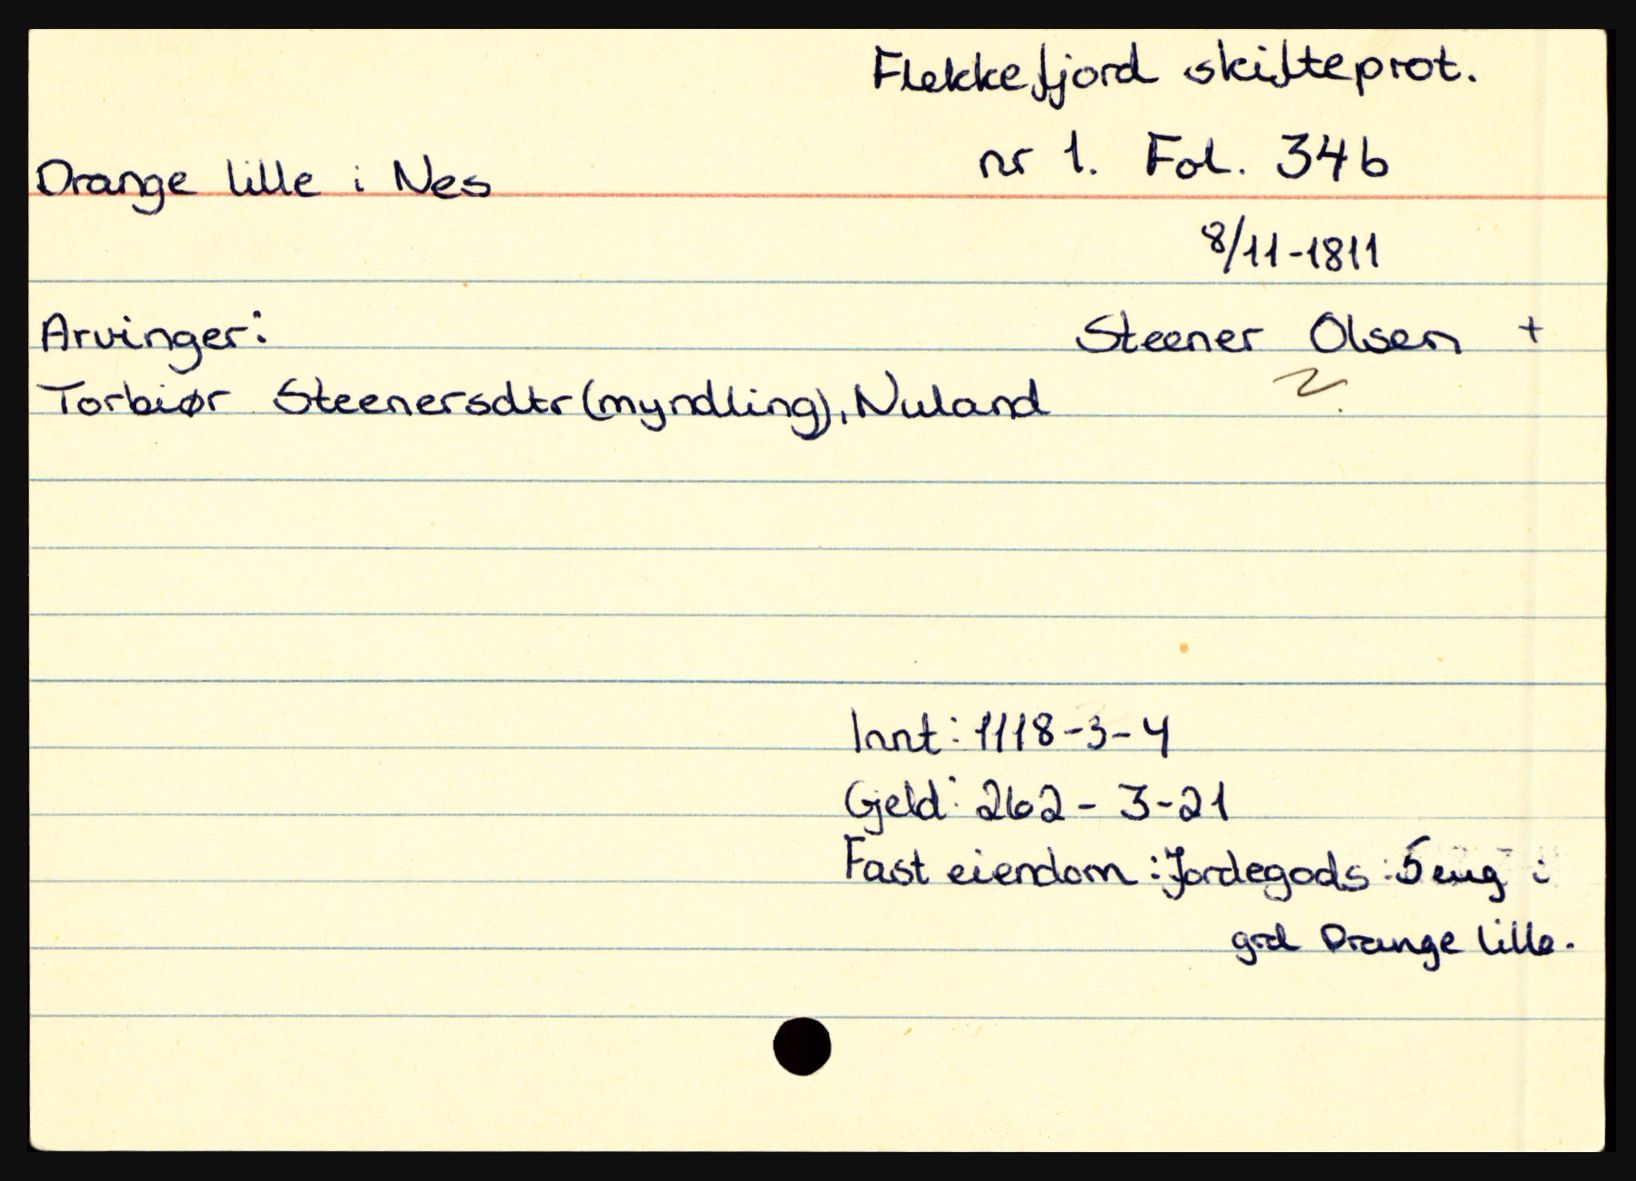 Flekkefjord skifteprot.
nr 1. Fol. 34b
Drange lille i Nes
8/11-1811
Arvinger:
Steener Olsen +
Torbiør Steenersdtr (myndling), Nuland
Innt: 1118-3-4
Gjeld: 262-3-21
Fast eiendom: Jordegods: 5 eng i
grd Drange lille.